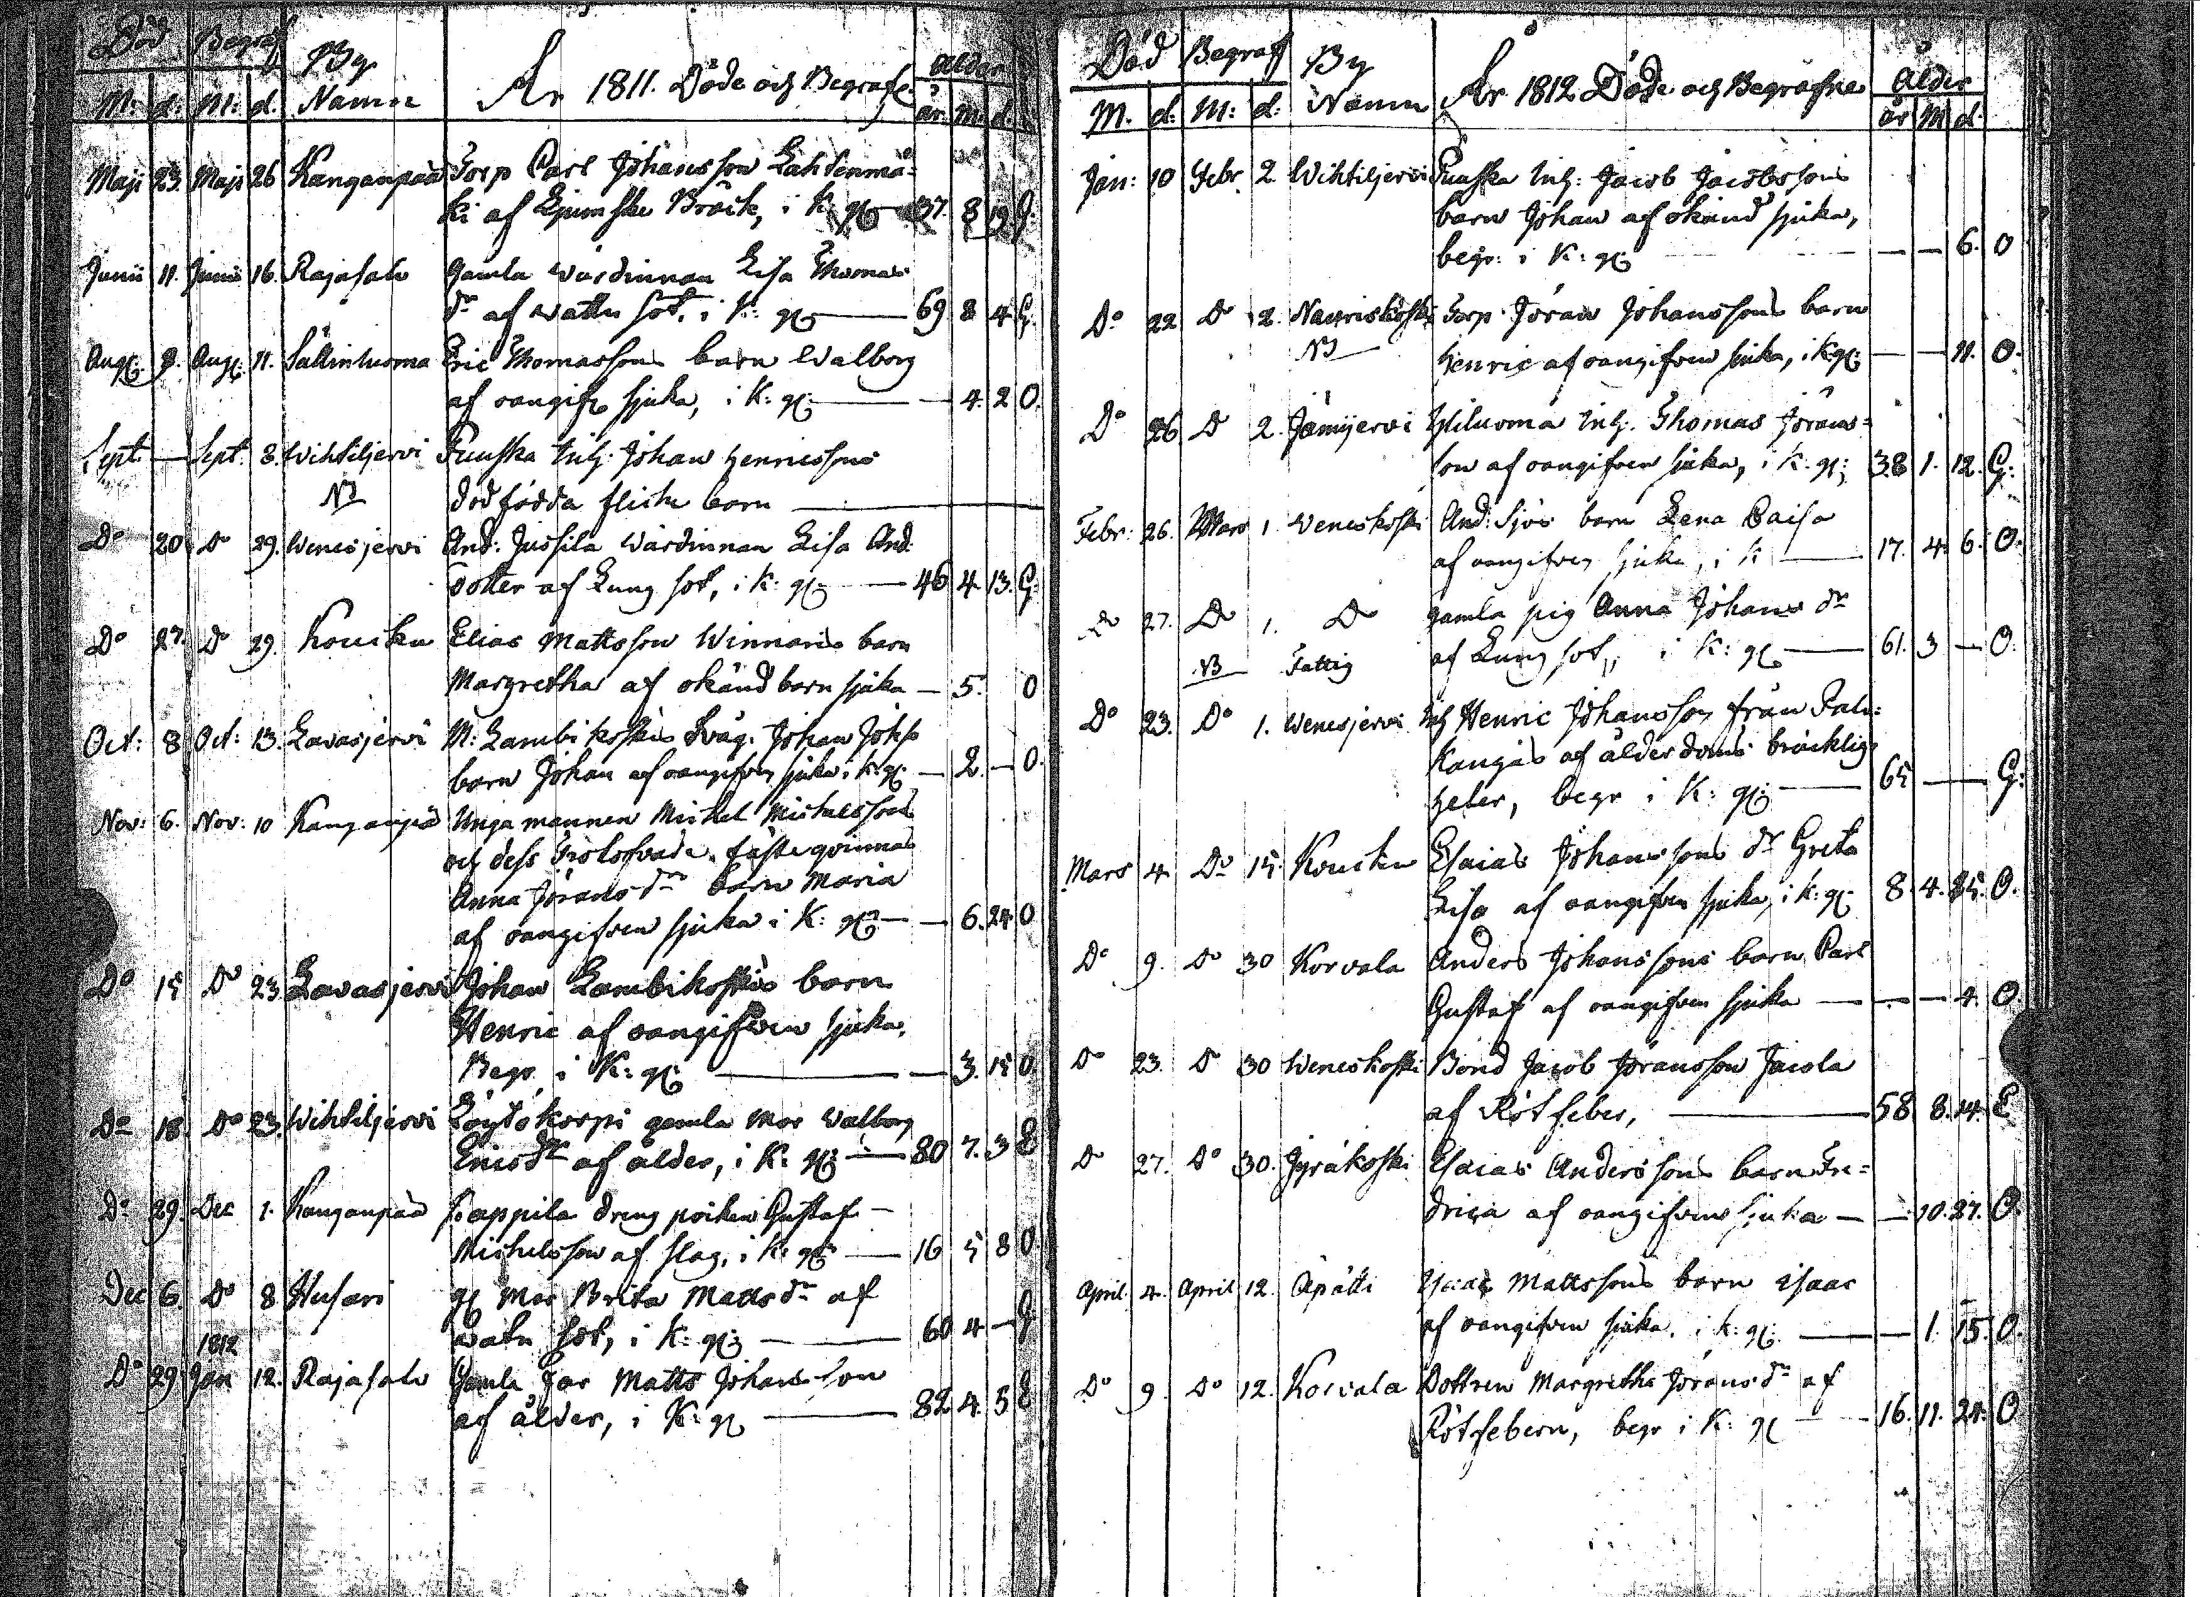 Död Begraf By År 1811. Döde och Begrafne ålder
M: d: M: d. Namn år: M: d.
Maji 23. Maji 26 Kanganpää Torp Carl Johansson Lahdenmä-
ki af Ljumske Bråck, i K: g: 37. 8 19 G:
Junii 11. Junii 16. Rajasalo Gamla Wärdinnan Lisa Thomas
dr af wattu sot, i K: g: 69 8 4 G:
Aug: 9. Aug: 11. Sällinluoma Eric Thomassons barn Walborg
af oangifv sjuka, i K: g: — 4. 2 O.
Sept: — Sept: 8. Wihtiljervi Funska Inh: Johan Henricssons
NB dödfödda flicke barn —
Do 20 Do 29. Wenesjervi And: Jussila Wärdinnan Lisa And:
dotter af Lung sot, i K: g: — 46 4 13. G:
Do 27. Do 29. Koucku Elias Mattsson Winnaris barn
Margretha af okänd barn sjuka — 5. O
Oct: 8 Oct: 13. Lavasjervi M: Lambikoskis Svåg: Johan Johss
barn Johan af oangifven sjuka i K: g: — 2. — O.
Nov: 6. Nov: 10 Kanganpää Unga mannen Michel Michelssons
och dess Trolofvade fäste qvinnas
Anna Jörans dr barn Maria
af oangifven sjuka i K: g: — 6. 24 O
Do 15 Do 23. Lavasjervi Johan Lambikoskis barn
Henric af oangifven sjuka,
Begr. i K: g: — 3. 15 O.
Do 18. Do 23. Wihtiljervi Löytökorpi gamla Mor Walborg
Erics dr af ålder, i K: g: — 80 7. 3 E
Do 29. Dec 1. Kanganpää Seppila dreng poiken Gustaf
Michelsson af slag, i K: g: — 16 5 8 O.
Dec 6. Do 8 Husari g: Mor Brita Matts dr af
watn sot, i K: g: — 60 4 — G
1812
Do 29 Jan 12. Rajasalo Gamla Far Matts Johansson
af ålder, i K: g: — 82 4. 5 E
Död Begraf By År 1812 Döde och Begrafne ålder
M. d: M: d: Namn år M d.
Jan: 10 Febr. 2 Wihtiljervi Funska Inh: Jacob Jacobssons
barn Johan af okänd sjuka,
begr: i K: g: — — 6. O
Do 22 Do 2. Nauriskoski Torp. Jöran Johanssons barn
NB Henric af oangifven sjuka, i K: g: — — 11. O.
Do 26 Do 2. Jämijervi Yliluoma Inh: Thomas Jörans-
son af oangifven sjuka, i K: g: 38 1. 12. G:
Febr: 26. Mars 1. Weneskoski And: Sjös barn Lena Caisa
af oangifven sjuka, i K — 17. 4. 6. O.
Do 27. Do 1. Do gamla pig Anna Johans dr
NB Fattig af Lung sot, i K: g: — 61. 3 — O.
Do 23. Do 1. Wenesjervi Inh Henric Johansson från Palo-
kangas af ålderdoms bräcklig
heter, begr i K: g: — 65 — G:
Mars 4. Do 15. Koucku Esaias Johanssons dr Greta
Lisa af oangifven sjuka, i K: g: 8. 4. 25. O.
Do 9. Do 30 Korvala Anders Johanssons barn Carl
Gustaf af oangifven sjuka — — — 4. O.
Do 23. Do 30 Weneskoski Bond Jacob Jöransson Jacola
af Rötfeber, — 58. 8. 14. E
Do 27. Do 30. Jyräkoski Esaias Anderssons barn Fre-
drica af oangifven sjuka — — 10. 27. O.
April 4. April 12. Äpätti Isaac Mattssons barn Isaac
af oangifven sjuka, i K: g: — — 1. 15. O.
Do 9. Do 12. Korvala Dottren Margretha Jörans dr af
Rötfebern, begr i K: g: — 16. 11. 24. O